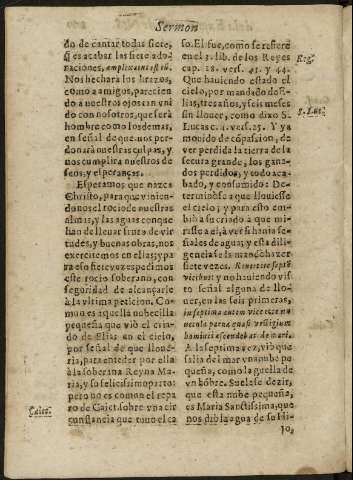 Sermon
do de cantar todas siete,
q̃ es acabar las siete ado-
raciones, amplicantes tũ.
Nos hechara los brazos,
como a amigos, parecien
do à nuestros ojos tan vni
do con nosotros, que será
hombre como los demas,
en señal de que nos per-
donará nuestras culpas, y
nos cumplira nuestros de
seos, y esperanças.
Esperamos que nazca
Christo, para que vinien-
donos el rocio de nuestras
almas, y las aguas con que
han de lleuar fruto de vir
tudes, y buenas obras, nos
exercitemos en ellas; y pa-
ra eso siete vozes pedimos
este rocio soberano, con
seguridad de alcançarle
à la vltima peticion. Co-
mun es aquella nubecilla
pequeña que vió el cria-
do de Elias en el cielo,
por señal de que lloue-
ria, para entẽder por ella
à la soberana Reyna Ma-
ria, y su felicissimo parto:
pero no es comun el repa
ro de Caiet. sobre vna cir
cunstancia que tuuo el ca
Caiet.
so. El fue, como se refiere
en el 3. lib. de los Reyes
cap. 18. vers. 43. y 44.
Reg.
Que hauiendo estado el
cielo, por mandado de E-
lias, tres años, y seis meses
sin llouer, como dixo S.
Lucas c. 4. vers. 25. Y ya
S. Luc.
mouido de cõpasion, de
ver perdida la tierra de la
secura grande, los gana-
dos perdidos, y todo aca-
bado, y consumido: De-
terminose a que llouiesse
el cielo; y para esto em-
bia a su criado a que mi-
rasse a el, à ver si hauia se-
ñales de agua; y esta dili-
gencia se la mandó hazer
siete vezes. Reuertere septẽ
vicibus: y no hauiendo vis
to señal alguna de llo-
uer, en las seis primeras,
in septima autem vice ecce nu
becula parua quasi vestigium
hominis ascendebat de mari.
A la septima vez, vió que
salia del mar vna nube pe
queña, como la guella de
vn hõbre. Suelase dezir,
que esta nube pequeña,
es Maria Santissima, que
nos dió la agua de su Di-